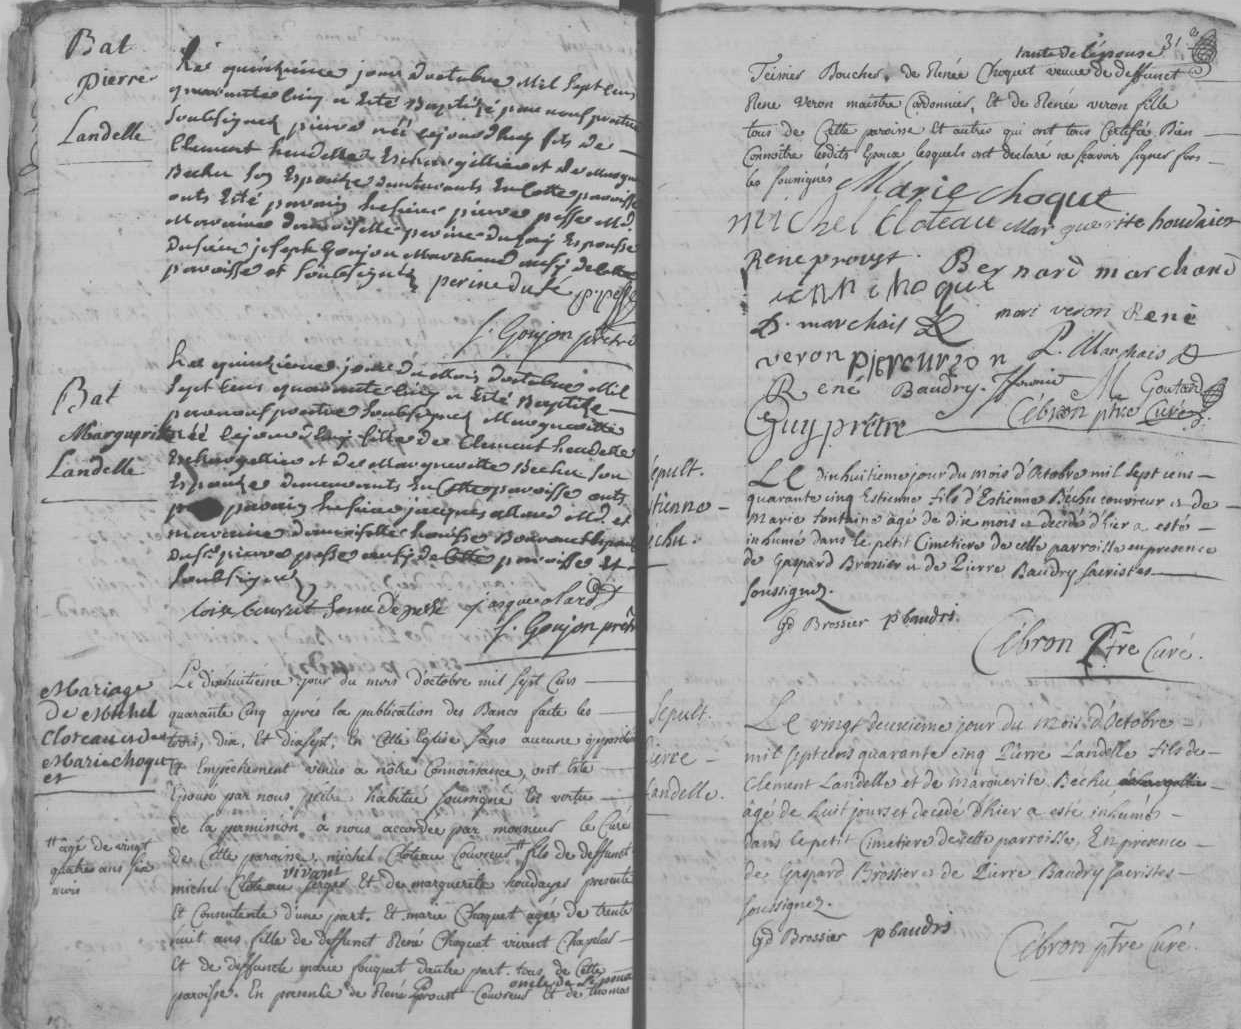 Bat
Pierre
Landelle
Le quinzieme jour d'octobre Mil Sept Cens
quarante cinq a Esté Baptizé par nous pretre
Soubsigné pierre néé cejourd'huy fils de
Clement
Bechu Son Espouze demeurants En Cette paroisse
onts Esté parain le sieur pierre pesse Md.
Maraine demoiselle perine dufay Espouse
du sieur joseph Goujon Marchand aussy de Cette
paroisse et Soubsigné perine dufe p pesse
f. Goujon prêtre
Bat
Marguerite
Landelle
Le quinzieme jour du Mois d'octobre Mil
Sept Cens quarante cinq a Esté Baptizée
par nous pretre Soubsigné Marguerite
néé cejourd'huy fille de Clement
et de Marguerite Bechu Son
Espouze demeurants En Cette paroisse onts
parain le sieur jacques allard Md. et
maraine demoiselle
du Sr pierre pesse aussy de Cette paroisse Et
Soubsigné
f. Goujon prêtre
Mariage
de Michel
Cloteau et de
Marie choqu
et
Le dixhuitieme jour du mois d'octobre mil sept Cens
quarante Cinq apres la publication des Bancs faite les
trois, dix, Et dixsept, En Cette Eglise sans aucune opposition
Et Empechement venus a nôtre Connoissance, ont Esté
Epouse par nous prêtre habitué soussigné En vertu
de la permission à nous accordée par monsieur le Curé
de Cette paroisse, michel Cloteau Couvreur # fils de deffunct
# agé de vingt
quatre ans six
mois
vivant
michel Cloteau serger Et de marguerite houdayer presente
Et Consentente d'une part. Et marie Choquet agée de trente
huit ans fille de deffunct René Choquet vivant Chapelier
Et de deffuncte marie fouquet dautre part. tous de Cette
oncle de L'epoux
paroisse. En presence de René Proust Couvreur Et de thomas
31
tante de l'épouse
Teinier Boucher, de Renée Choquet veuve de deffunct
Rene veron maistre Cordonnier, Et de Renée veron fille
tous de Cette paroisse Et autres qui ont tous Certifié Bien
Connoître lesdits Epoux lesquels ont declaré ne scavoir signer fors
les soussignés
Marie choque
michel Cloteau Margueritte houdaier
Rene proust. Bernard marchand
jean choque
D. marchais mari veron René
veron pierre urson L. Marchais
René Baudry. M Goutard
Guy prêtre Cébron ptre Curé
Sepult.
Etienne
Bechu.
Le dixhuitieme jour du mois d'Octobre mil sept cens
quarante cinq Estienne fils d'Estienne Bechu couvreur et de
Marie fontaine agé de dix mois et decédé d'hier a esté
inhumé dans le petit Cimetiere de cette parroisse en presence
de Gaspard Brossier et de Pierre Baudry sacristes
soussignez.
Gd Brossier p baudri.
Cébron Ptre Curé.
Sepult.
Pierre
Landelle.
Le vingt deuxieme jour du mois d'Octobre
mil sept cens quarante cinq Pierre Landelle fils de
Clement Landelle et de Marguerite Bechu
âgé de huit jours et decedé d'hier a esté inhumé
dans le petit Cimetiere de cette parroisse, En presence
de Gaspard Brossier et de Pierre Baudry sacristes
soussignez.
Gd Brossier p baudri
Cébron ptre Curé.